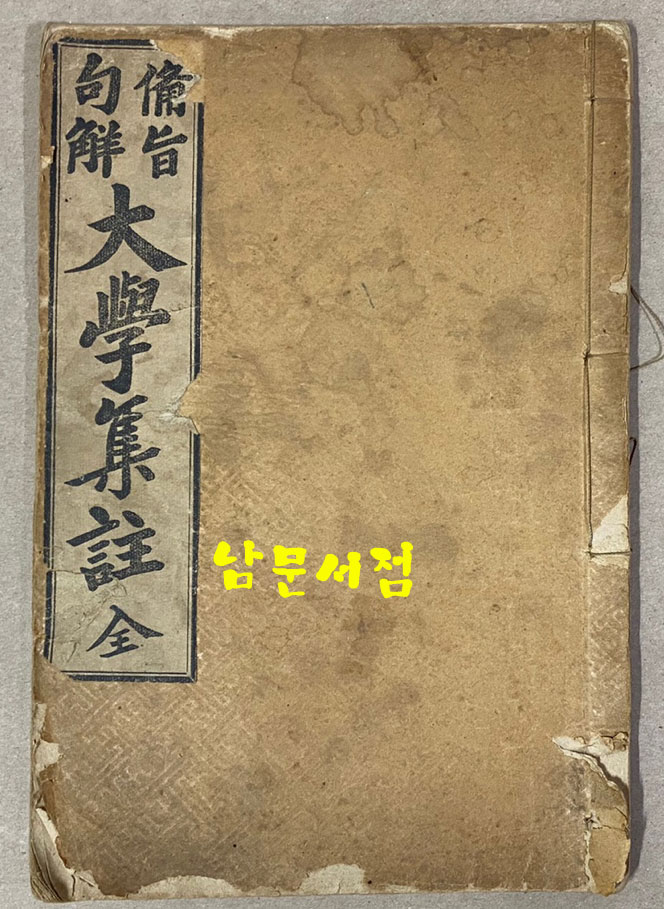 備旨
句解
大學集註 全
남문서점